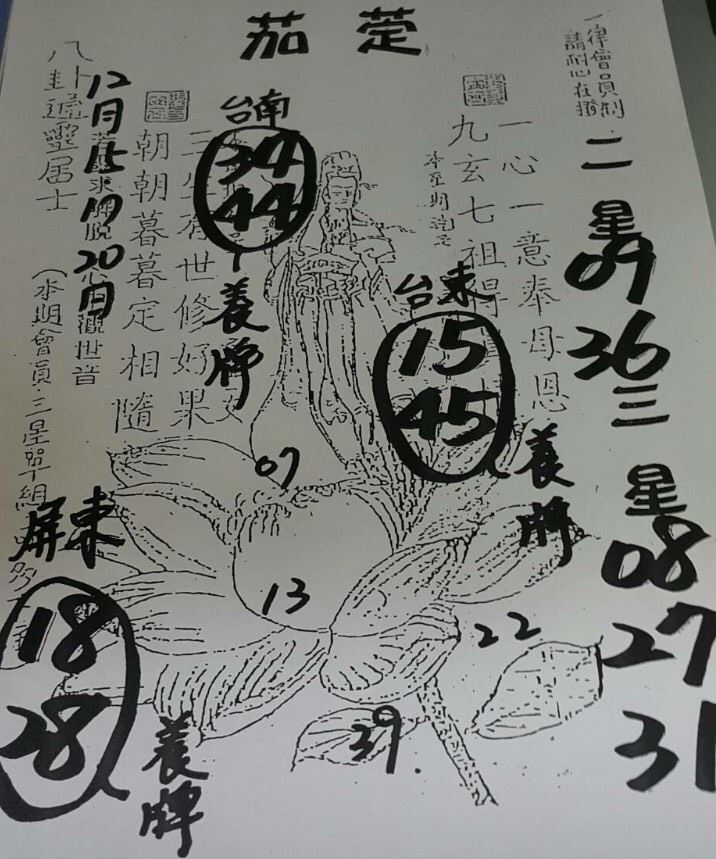 茄萣
一律會員制
請耐心在撥
二星
09
36
三星
08
27
31
一心一意奉母恩
九玄七祖得
台南
34
44
養牌
台東
15
45
養牌
三
世修好果
朝朝暮暮定相隨
12月15 17 20日
觀世音
八卦
居士
(本期會員三星單組
屏東
18
28
養牌
07
13
22
39